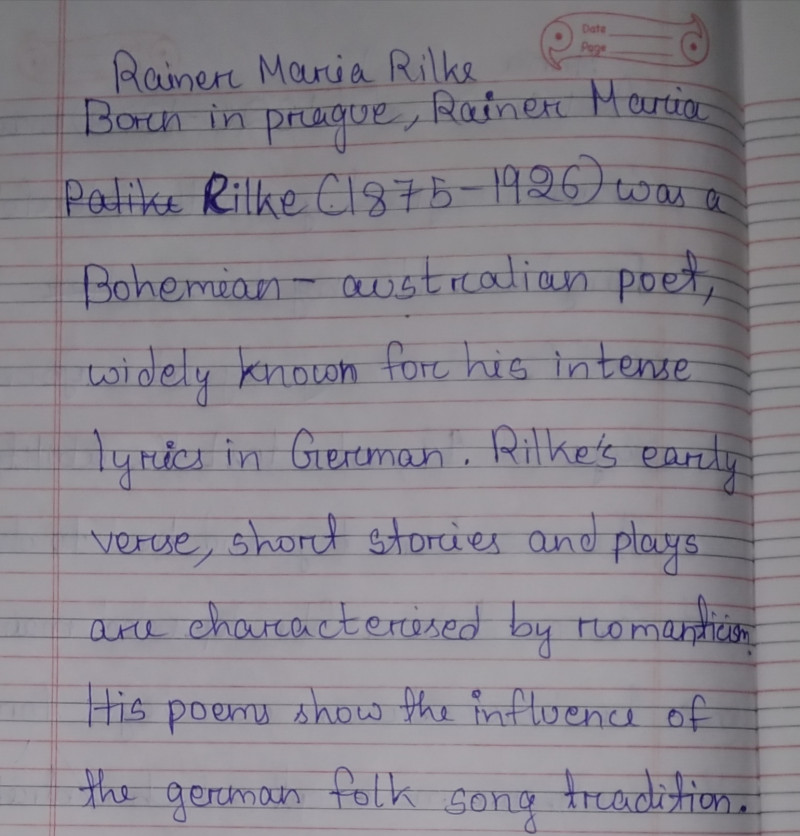 Date
Page
Rainer Maria Rilke
Born in prague, Rainer Maria
Patike Rilke (1875-1926) was a
Bohemian - australian poet,
widely known for his intense
lyrics in German. Rilke's early
verse, short stories and plays
are characterised by romanticism.
His poems show the influence of
the german folk song tradition.